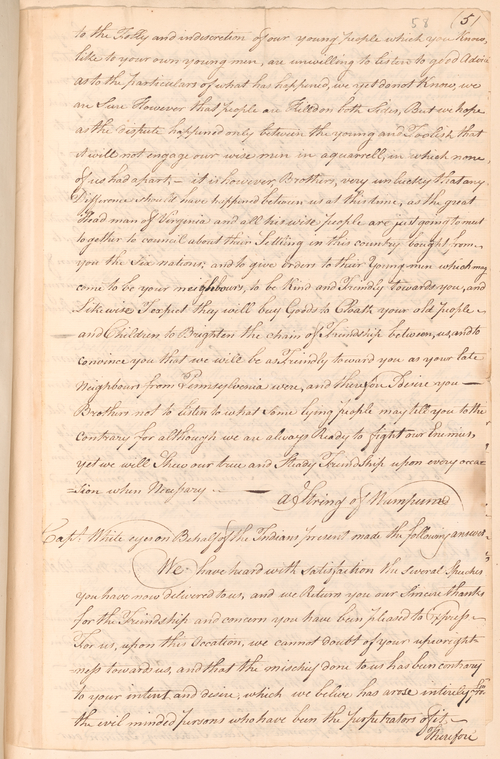 58 (5)
to the Folly and indiscretion of our young people which you Know,
like to your own young men, are unwilling to listen to good Advice
as to the particulars of what has happened, we yet do not Know, we
are Sure However that people are Killed on both Sides, But we hope
as the dispute happened only between the young and Foolish that
it will not engage our wise men in a quarrell, in which none
of us had a part, – it is however, Brothers, very unluckey that any
Difference should have happened between us at this time, as the great
Head man of Virginia and all his wise people are just going to meet
together to council about their Setling in this country bought from
you the Six nations; and to give orders to their Young men which may
come to be your neighbours, to be Kind and Friendly towards you, and
Likewise I expect they will buy Goods to Cloath your old people
– and Children to Brighten the chain of Friendship between us, and to
convince you that we will be as Friendly toward you as your late
Neighbours from Pennsylvania were, and therefore I desire you –
Brothers not to listen to what Some lying people may tell you to the
Contrary for although we are always Ready to fight our Enemies
yet we will Shew our true and Steady Friendship upon every occa
=sion when Necessary – — a String of Wampum
Capt. White eyes on Behalf of the Indians present made the following answer
We have heard with Satisfaction the Several Speeches
you have now delivered to us, and we Return you our Sincere thanks
for the Friendship and concern you have been pleased to Express
For us, upon this Occation, we cannot doubt of your upwright-
-ness towards us, and that the mischief done to us has been contrary
to your intent and desire, which we belive has arose intirely from
the evil minded persons who have been the perpetrators of it, –
Therefore